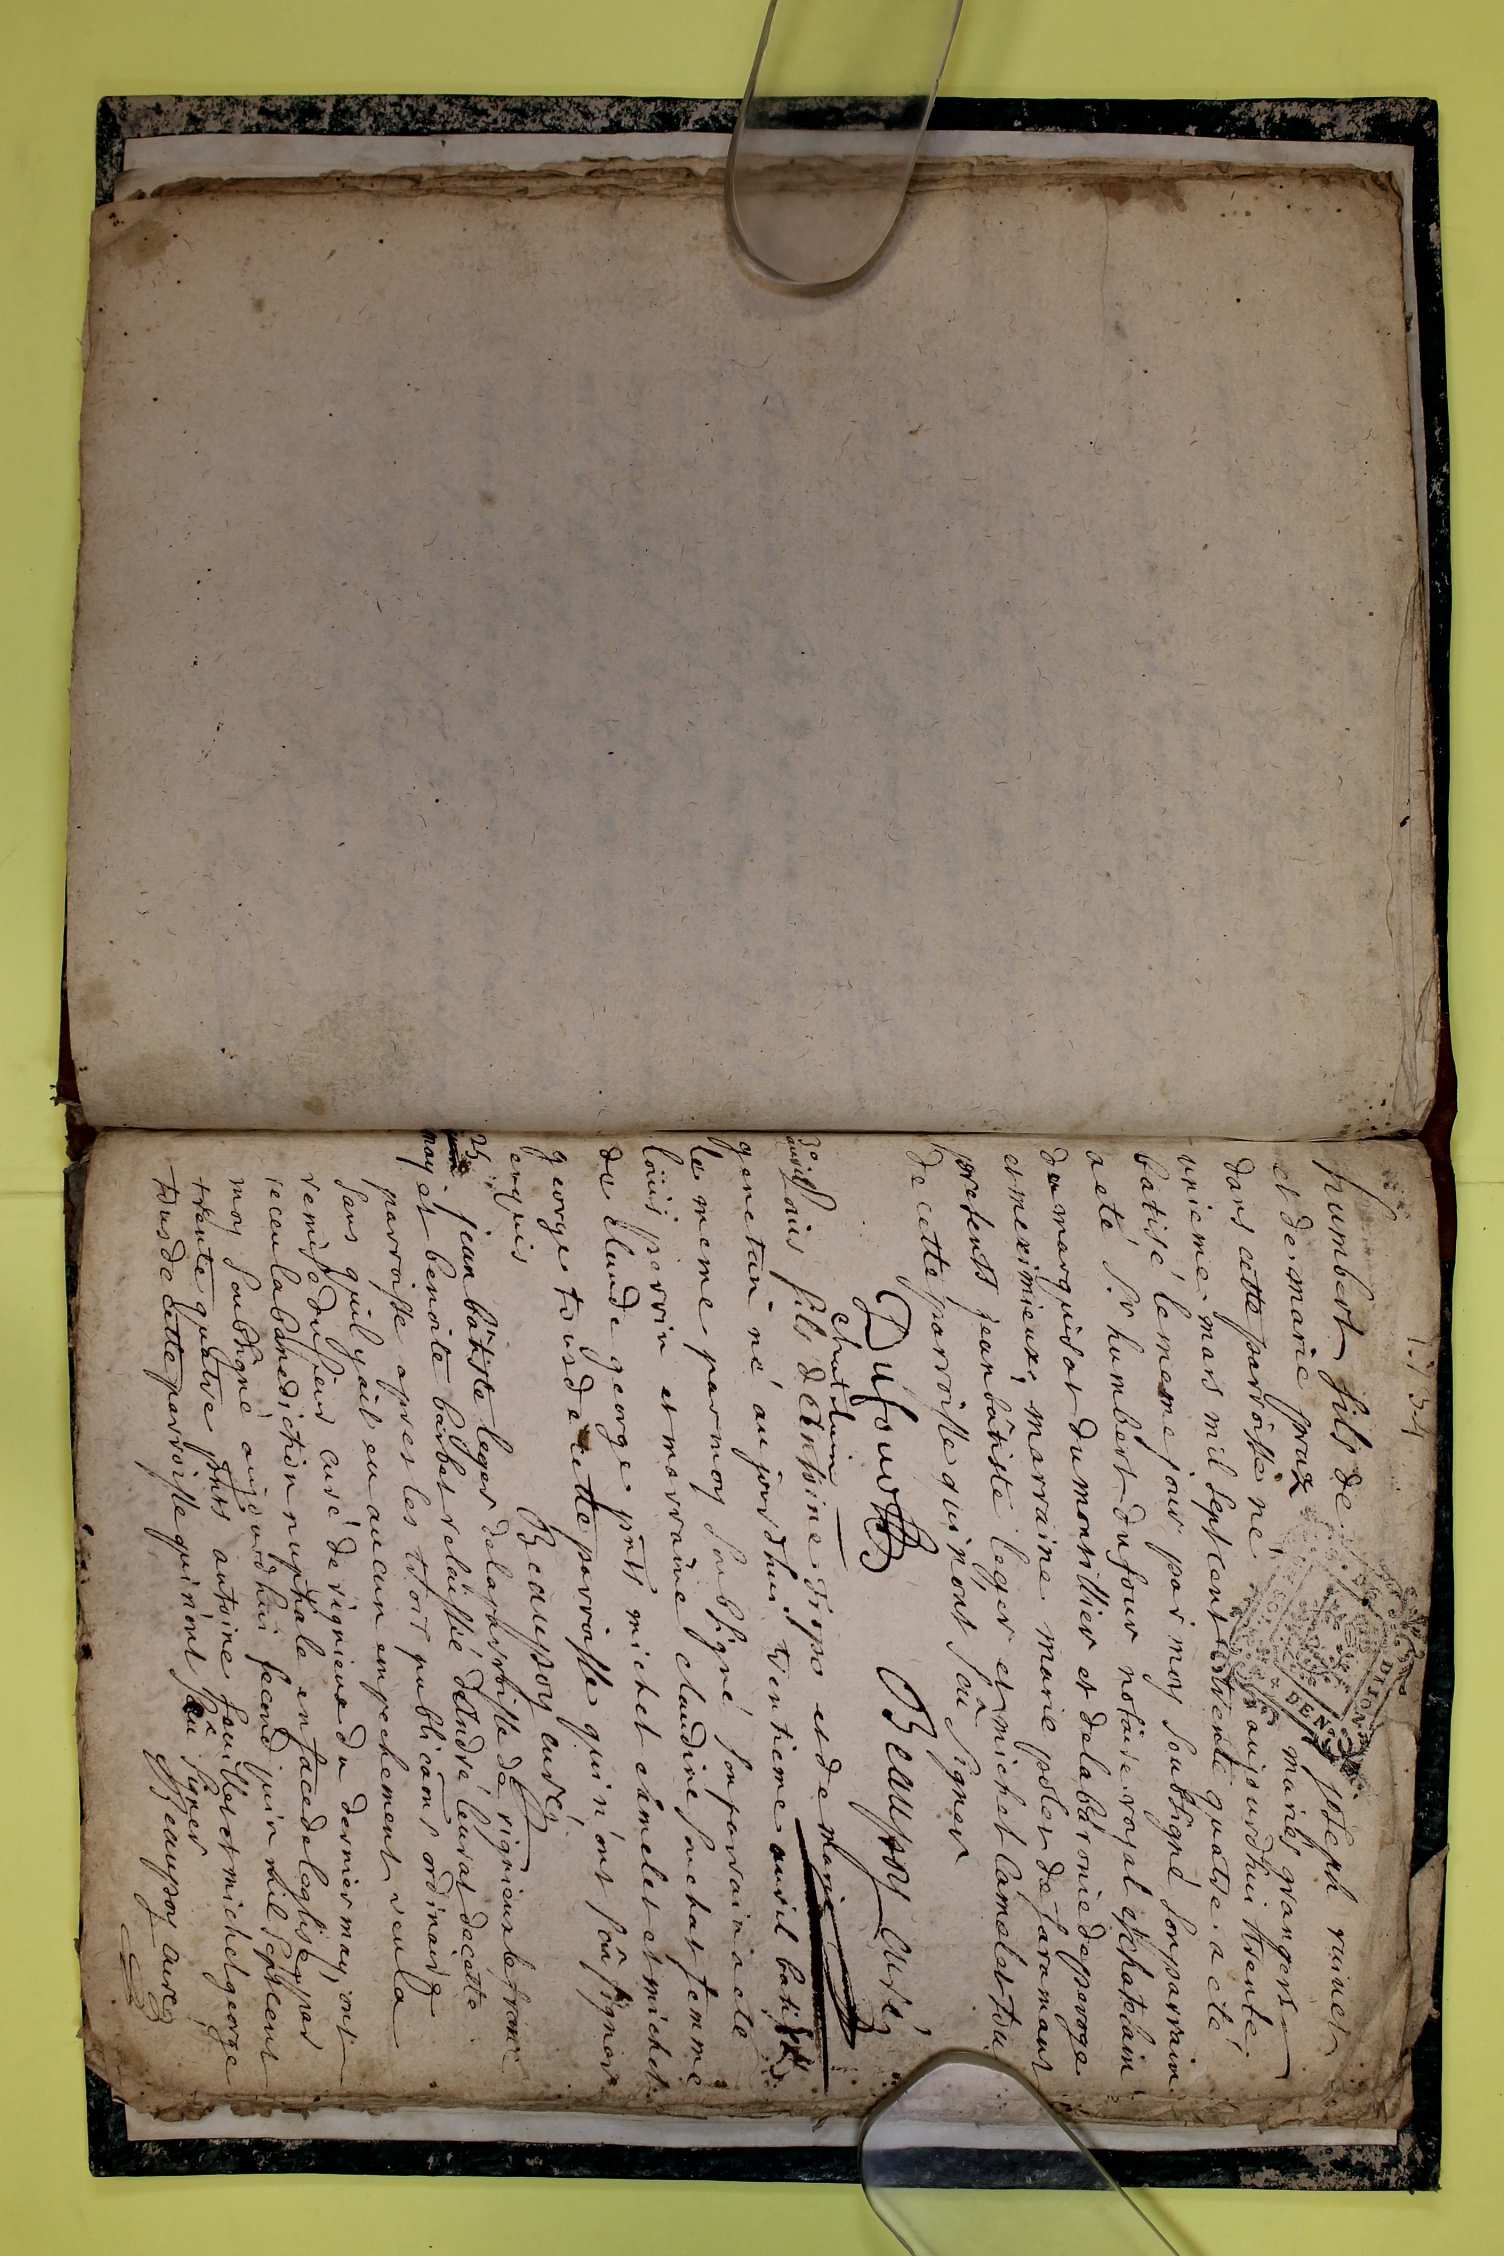 1734
DIJON
DEN
humbert fils de joseph ruinet
et de marie praz mariés grangers
dans cette parroisse né aujourdhui trente
unieme mars mil sept cent trente quatre a eté
batisé le meme jour par moy soubsigné son parrain
a eté Sr humbert dufour notaire royal et chatelain
du marquisat du montillier et de la baronie de peroge
et meximieux marraine marie polet de faramant
presents jean bâtiste leger et michel camelet tou
de cette parroisse qui n'ont sçu signer
Dufour Beaupoy curé
chatelain
30 avril
Louis fils d'Antoine et de marie
genetan né aujourdhui trentieme avril batisé
le meme par moy soubsigné son parrain a eté
loüis perrin et marraine claudine suchat femme
de claude george pnts michel camelet et michel
george tous de cette parroisse qui n'ont sçu signer
enquis
Beaupoy curé
25
may
jean bâtiste leger de la parroisse de rignieux le franc
et benoite barbet relaissé d'André leurat de cette
parroisse apres les trois publicaons ordinaire
sans quil y ait eu aucun empechement veu la
remise du sieur curé de rignieux du dernier may, ont
receu la benediction nuptiale en face de leglise par
moy soubsigné aujourdhui second juin mil sept cent
trente quatre pnts antoine et michel george
tous de cette parroisse qui n'ont sçu signer
Beaupoy curé